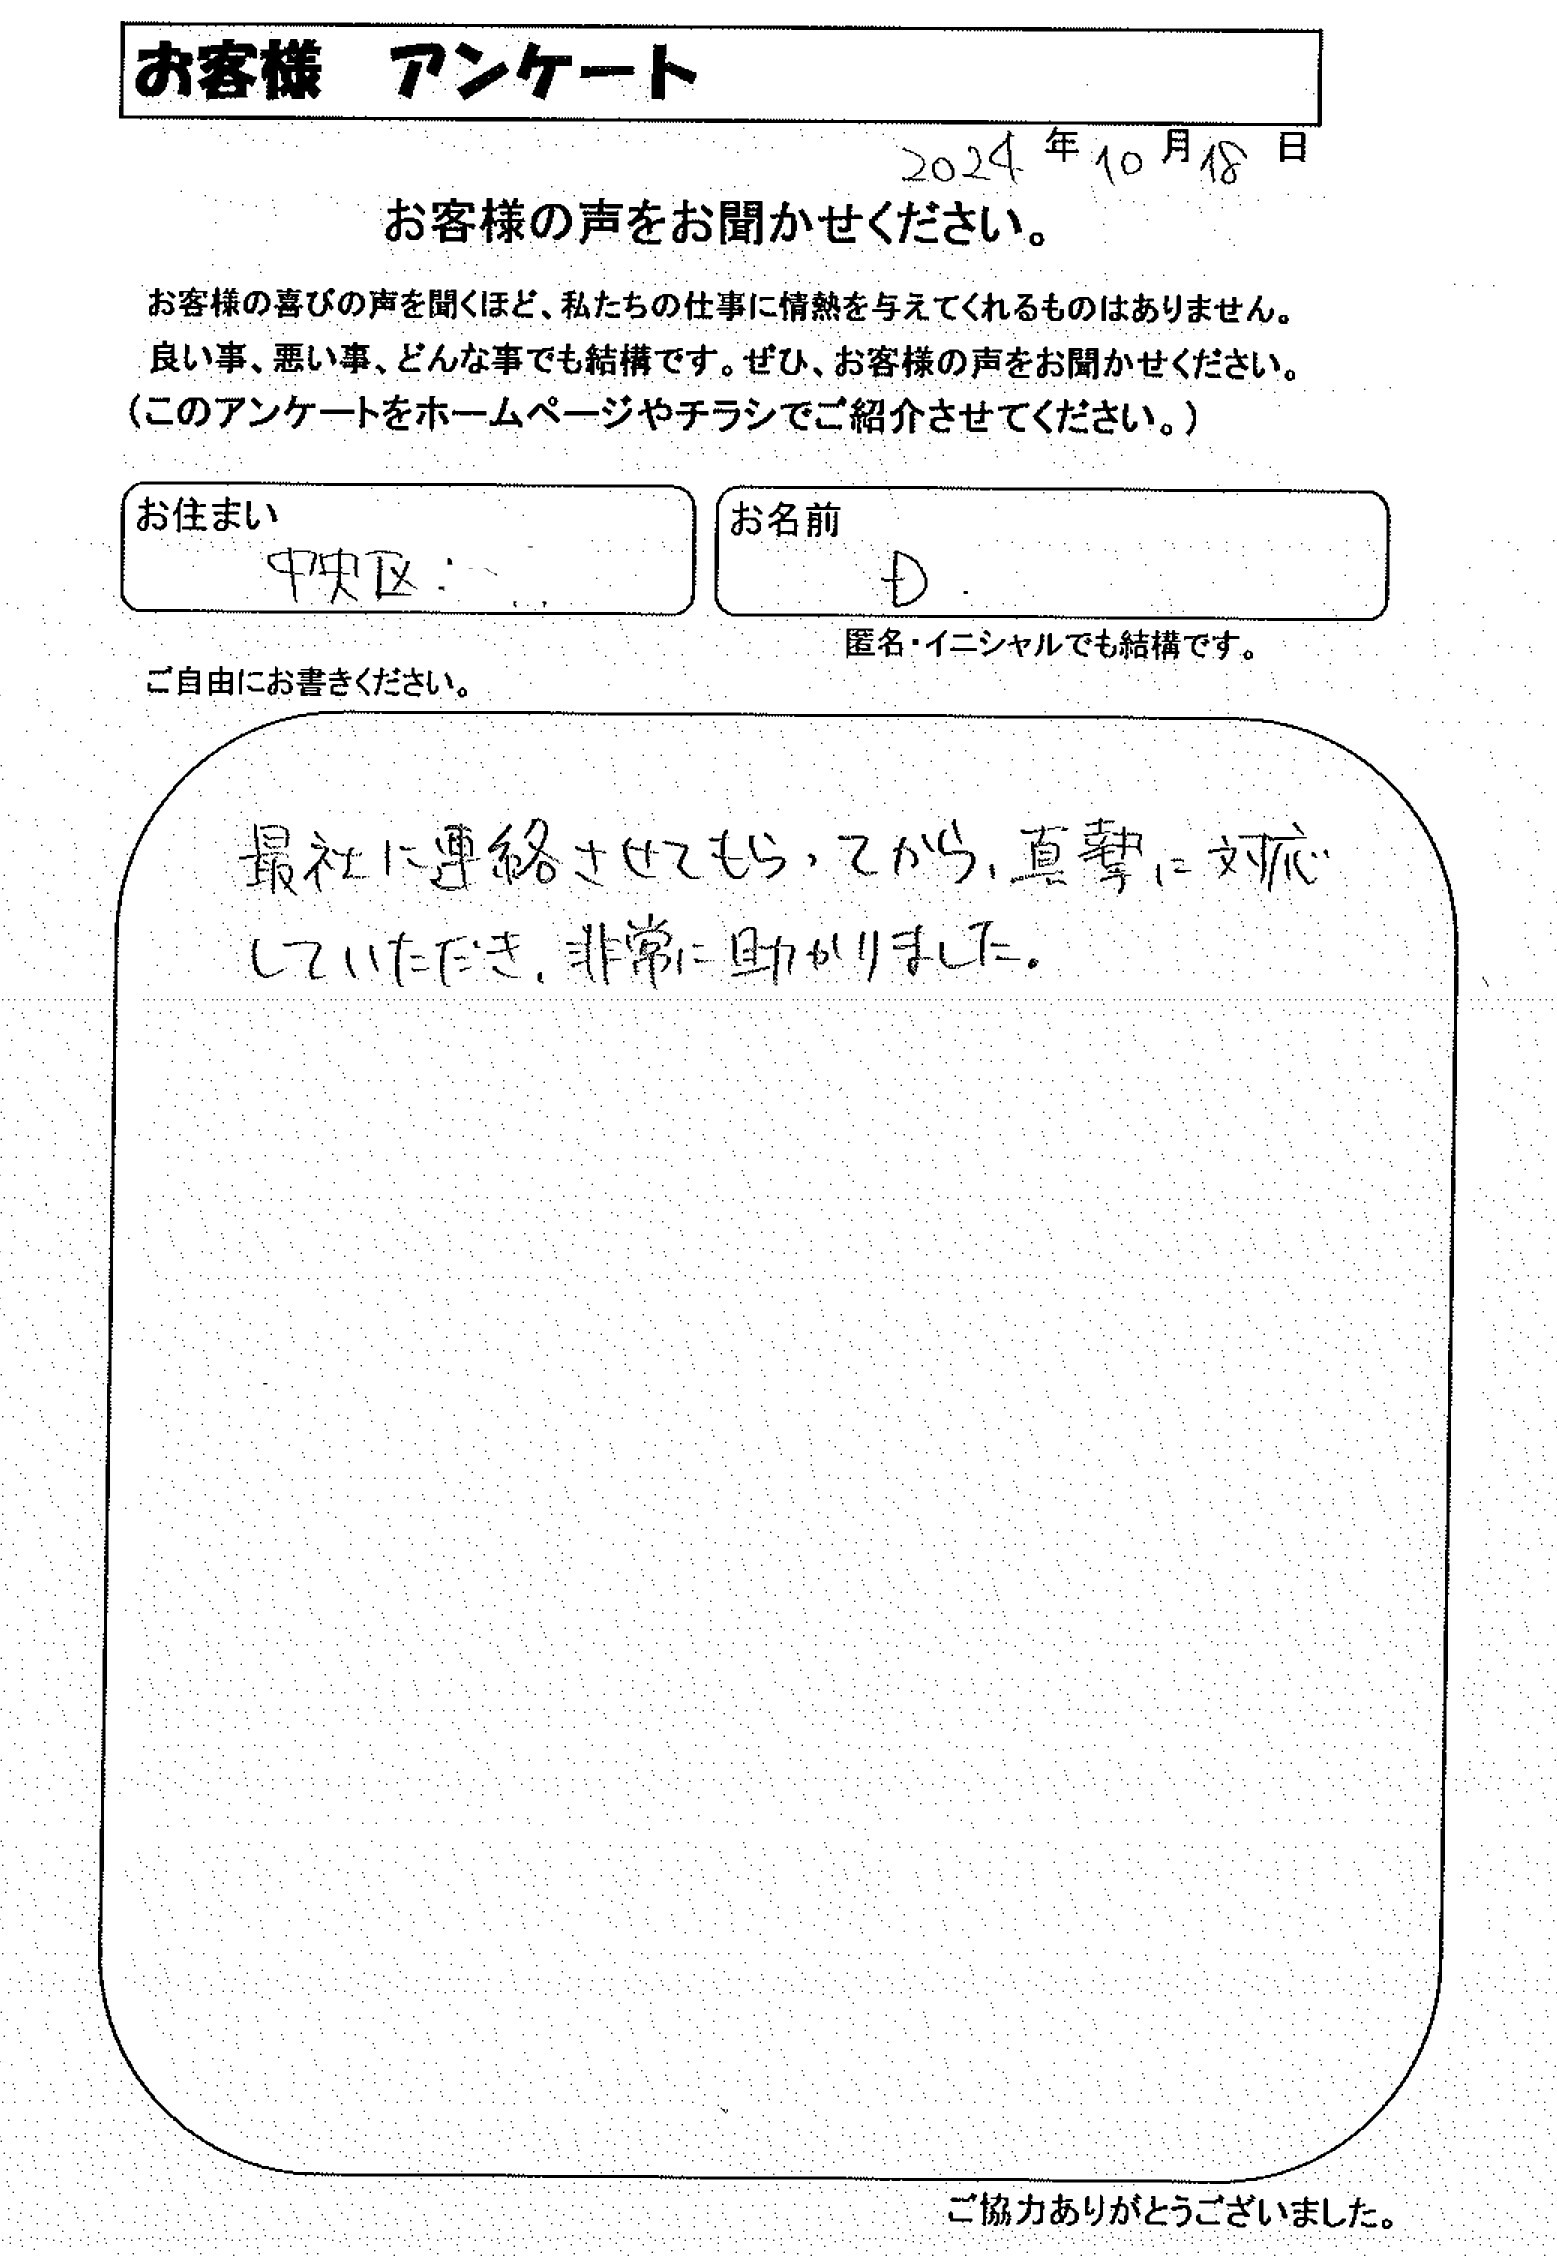 お客様　アンケート
2024 年 10 月 18 日
お客様の声をお聞かせください。
お客様の喜びの声を聞くほど、私たちの仕事に情熱を与えてくれるものはありません。
良い事、悪い事、どんな事でも結構です。ぜひ、お客様の声をお聞かせください。
（このアンケートをホームページやチラシでご紹介させてください。）
お住まい
中央区
お名前
D
匿名・イニシャルでも結構です。
ご自由にお書きください。
最社に連絡させてもらってから、真摯に対応
していただき、非常に助かりました。
ご協力ありがとうございました。